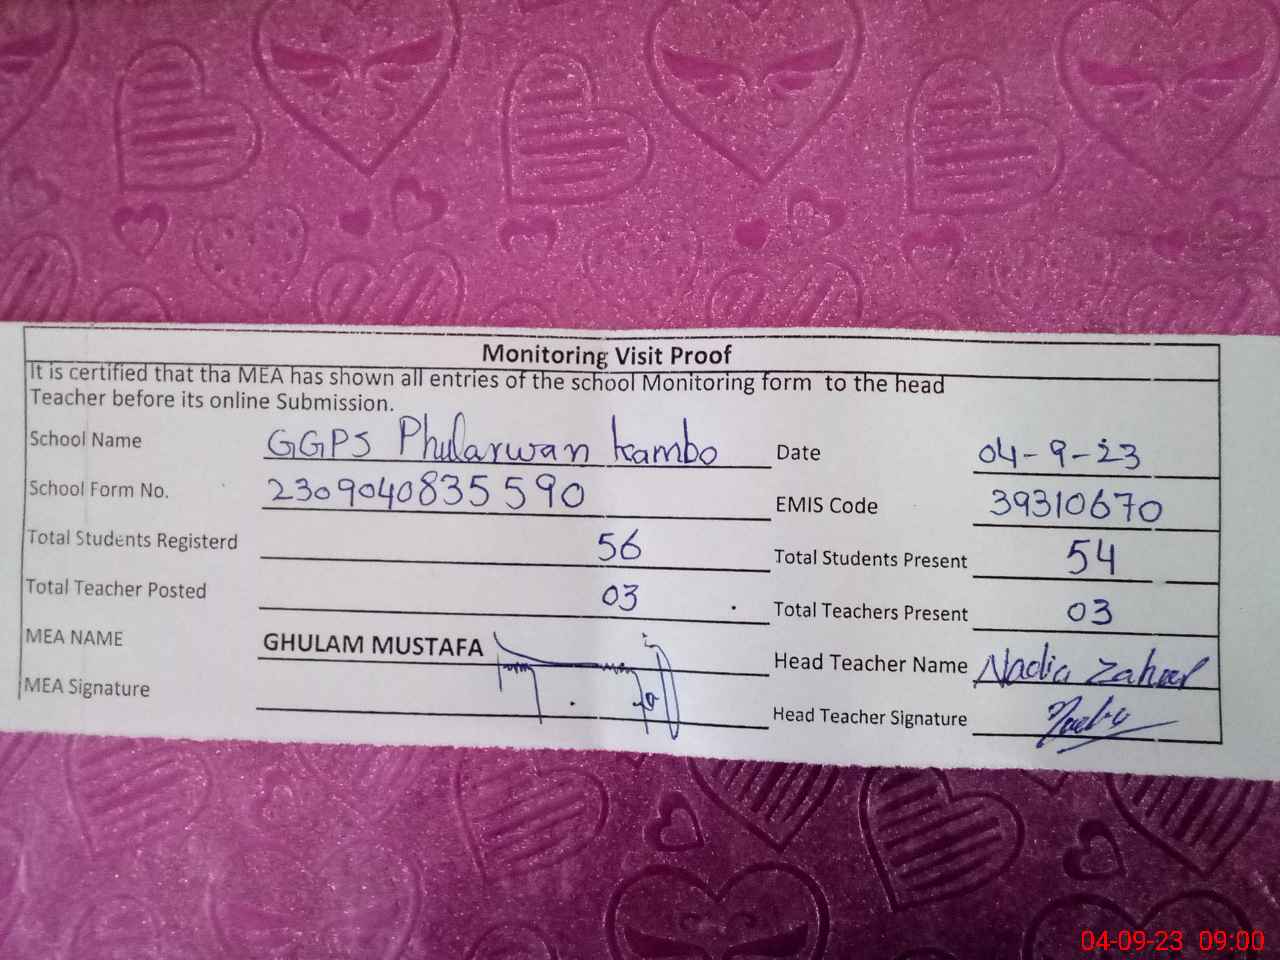 Monitoring Visit Proof
It is certified that tha MEA has shown all entries of the school Monitoring form to the head
Teacher before its online Submission.
School Name GGPS Phularwan kambo Date 04-9-23
School Form No. 2309040835590 EMIS Code 39310670
Total Students Registerd 56 Total Students Present 54
Total Teacher Posted 03 Total Teachers Present 03
MEA NAME GHULAM MUSTAFA Head Teacher Name Nadia Zaheer
MEA Signature Head Teacher Signature
04-09-23 09:00